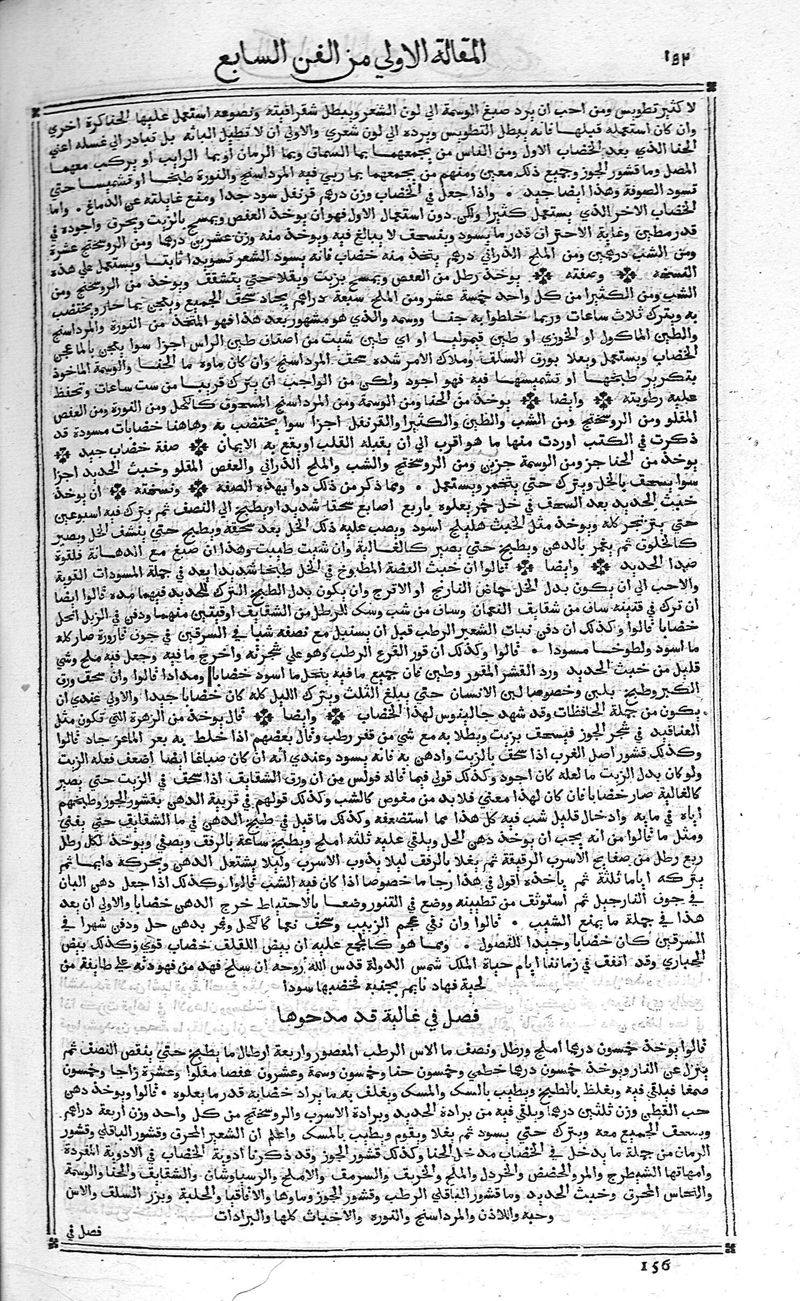 ١٥٢ المقالة الاولي من الفن السابع
لا كثير تطويس ومن احب ان يرد صبغ الوسمة الي لون الشعر ويبطل شقرافيته ونصوعه استعمل عليها الحنا كرة اخري
وان كان استعمله قبلها فانه يبطل التطويس ويرده الي لون شعري والاولي ان لا تطيل اللبانه بل تبادر الي غسله اعني
الحنا الذي بعد الخضاب الاول ومن الناس من يجمعهما بما السماق وبما الرمان او بما الرايب او يركب معهما
المصل وما قشور الجوز وجميع ذلك معين ومنهم من يجمعهما بما ربي فيه المرداسنج والنورة طبخا او تشميسا حتي
تسود الصوفة وهذا ايضا جيد . واذا جعل في الخضاب وزن درهم قرنفل سود جدا ومنع غايلته عن الدماغ . واما
الخضاب الاخر الذي يستعمل كثيرا ولكن دون استعمال الاول فهو ان يوخذ العفص ويمسح بالزيت ويحرق واجوده في
قدر مطين وغاية الاحتراق قدر ما يسود وينسحق لا يبالغ فيه ويوخذ منه وزن عشرين درهما ومن الروسختج عشرة
ومن الشب درهمين ومن الملح الدراني درهم يتخذ منه خضاب فانه يسود الشعر تسويدا ثابتا ويستعمل علي هذه
النسخة ❖ وصفته ❖ يوخذ رطل من العفص ويمسح بزيت ويقلا حتي يتشقق ويوخذ من الروسختج ومن
الشب ومن الكثيرا من كل واحد خمسة عشر ومن الملح سبعة دراهم يجاد سحق الجميع ويعجن بما حار ويختضب
به ويترك ثلاث ساعات وربما خلطوا به حنا ووسمة والذي هو مشهور بعد هذا فهو المتخذ من النورة والمرداسنج
والطين الماكول او الخوزي او طين قيموليا او اي طين شيت من اصناف طين الراس اجزا سوا يعجن بالما عجن
الخضاب ويستعمل ويعلا بورق السلق وملاك الامر شدة سحق المرداسنج وان كان ماوه ما الحنا والوسمة الماخوذ
بتكرير طبخها او تشميسها فيه فهو اجود ولكن من الواجب ان يترك قريبا من ست ساعات وتحفظ
عليه رطوبته ❖ وايضا ❖ يوخذ من الحنا ومن الوسمة ومن المرداسنج المسحوق كالكحل ومن النورة ومن العفص
المقلو ومن الروسختج ومن الشب والطين والكثيرا والقرنفل اجزا سوا يختضب به وهاهنا خضابات مسودة قد
ذكرت في الكتب اوردت منها ما هو اقرب الي ان يقبله القلب او يقع به الايمان ❖ صفة خضاب جيد ❖
يوخذ من الحنا جز ومن الوسمة جزين ومن الروسختج والشب والملح الدراني والعفص المقلو وخبث الحديد اجزا
سوا يسحق بالخل ويترك حتي يتخمر ويستعمل . ومما ذكر من ذلك دوا بهذه الصفه ❖ ونسخته ❖ ان يوخذ
خبث الحديد بعد السحق في خل خمر يعلوه باربع اصابع سحقا شديدا ويطبخ الي النصف ثم يترك فيه اسبوعين
حتي يتزنجر كله ويوخذ مثل الخبث هليلج اسود ويصب عليه ذلك الخل بعد سحقه ويطبخ حتي ينشف الخل ويصير
كالخلوق ثم يغمر بالدهن ويطبخ حتي يصير كالغالية وان شيت طيبت وهذا ان صبغ مع الدهانة فلقوة
صدا الحديد ❖ وايضا ❖ قالوا ان خبث الفضة المطبوخ في الخل طبخا شديدا يعد في جملة المسودات القوية
والاحب الي ان يكون بدل الخل حماض النارنج او الاترج وان يكون بدل الطبخ الترك للحديد فيهما مده قالوا ايضا
ان ترك في قنينه ساف من شقايق النعمان وساف من شب وسك للرطل من الشقايق اوقيتين منهما ودفن في الزبل انحل
خضابا قالوا وكذلك ان دفن نبات الشعير الرطب قبل ان يسنبل مع نصفه شبا في السرقين في جوف قارورة صار كله
ما اسود ولطوخا مسودا . قالوا وكذلك ان قور القرع الرطب وهو علي شجرته واخرج ما فيه وجعل فيه ملح وشي
قليل من خبث الحديد ورد القشر المقور وطين فان جميع ما فيه ينحل ما اسود خضابا ومدادا قالوا وان سحق ورق
الكبر وطبخ بلبن وخصوصا لبن الانسان حتي يبلغ الثلث ويترك الليل كله كان خضابا جيدا والاولي عندي ان
يكون من جملة الحافظات وقد شهد جالينوس لهذا الخضاب ❖ وايضا ❖ قال يوخذ من الزهرة التي تكون مثل
العناقيد في شجر الجوز فيسحق بزيت ويطلا به مع شي من قفر رطب وقال بعضهم اذا خلط به بعر الماعز جاد قالوا
وكذلك قشور اصل الغرب اذا سحق بالزيت وادهن به فانه يسود وعندي انه ان كان صباغا ايضا اضعف فعله الزيت
ولو كان بدل الزيت ما لعله كان اجود وكذلك قولي فيما قاله فولس من ان ورق الشقايق اذا سحق في الزيت حتي يصير
كالغالية صار خضابا فان كان لهذا معني فلا بد من مغوص كالشب وكذلك قولهم في تربية الدهن بقشور الجوز وطبخهم
اياه في مايه وادخال قليل شب فيه كل هذا مما استضعفه وكذلك ما قيل في طبخ الدهن في ما الشقايق حتي يفني
ومثل ما قالوا من انه يجب ان يوخذ دهن الحل ويلقي عليه ثلثه املج ويطبخ ساعة بالرفق ويصفي ويوخذ لكل رطل
ربع رطل من صفايح الاسرب الرقيقة ثم يغلا بالرفق ليلا يذوب الاسرب وليلا يشتعل الدهن ويحركه دايما ثم
يتركه اياما ثلثة ثم ياخذه اقول في هذا رجا ما خصوصا اذا كان فيه الشب قالوا وكذلك اذا جعل دهن البان
في جوف النارجيل ثم استوثق من تطيينه ووضع في التنور وضعا بالاحتياط خرج الدهن خضابا والاولي ان يعد
هذا في جملة ما يمنع الشيب . قالوا وان نقي عجم الزبيب وسحق نعما كالكحل وغمر بدهن حل ودفن شهرا في
السرقين كان خضابا وجيدا للنصول . ومما هو كالمجمع عليه ان بيض اللقلق خضاب قوي وكذلك بيض
الحباري وقد اتفق في زماننا ايام حياة الملك شمس الدولة قدس الله روحه ان سلح فهد من فهودته علي طايفة من
لحية فهاد نايم بجنبه فخضبها سودا
فصل في غالية قد مدحوها
قالوا يوخذ خمسون درهما املج ورطل ونصف ما الاس الرطب المعصور واربعة ارطال ما يطبخ حتي ينقص النصف ثم
ينزل عن النار ويوخذ خمسون درهما خطمي وخمسون حنا وخمسون وسمة وعشرون عفصا مقلوا وعشرة زاجا وخمسون
صمغا فيلقي فيه ويغلظ بالطبخ ويطيب بالسك والمسك ويغلف به ما يراد خضابه قدر ما يعلوه . قالوا يوخذ دهن
حب القطن وزن ثلثين درهما ويلقي فيه من برادة الحديد وبرادة الاسرب والروسختج من كل واحد وزن اربعة دراهم
ويسحق الجميع معه ويترك حتي يسود ثم يغلا ويقوم ويطيب بالمسك واعلم ان الشعير المحرق وقشور الباقلي وقشور
الرمان من جملة ما يدخل في الخضاب مدخل الحنا وكذلك قشور الجوز وقد ذكرنا ادوية الخضاب في الادوية المفردة
وامهاتها الشيطرج والمر والحضض والخردل والملح والخربق والسرمق والاملج والبرسياوشان والشقايق والحنا والوسمة
والنحاس المحرق وخبث الحديد وما قشور الباقلي الرطب وقشور الجوز وماوها والاقاقيا والحلبة وبزر السلق والاس
وحبه واللاذن والمرداسنج والنوره والاخباث كلها والبرادات
فصل في
156